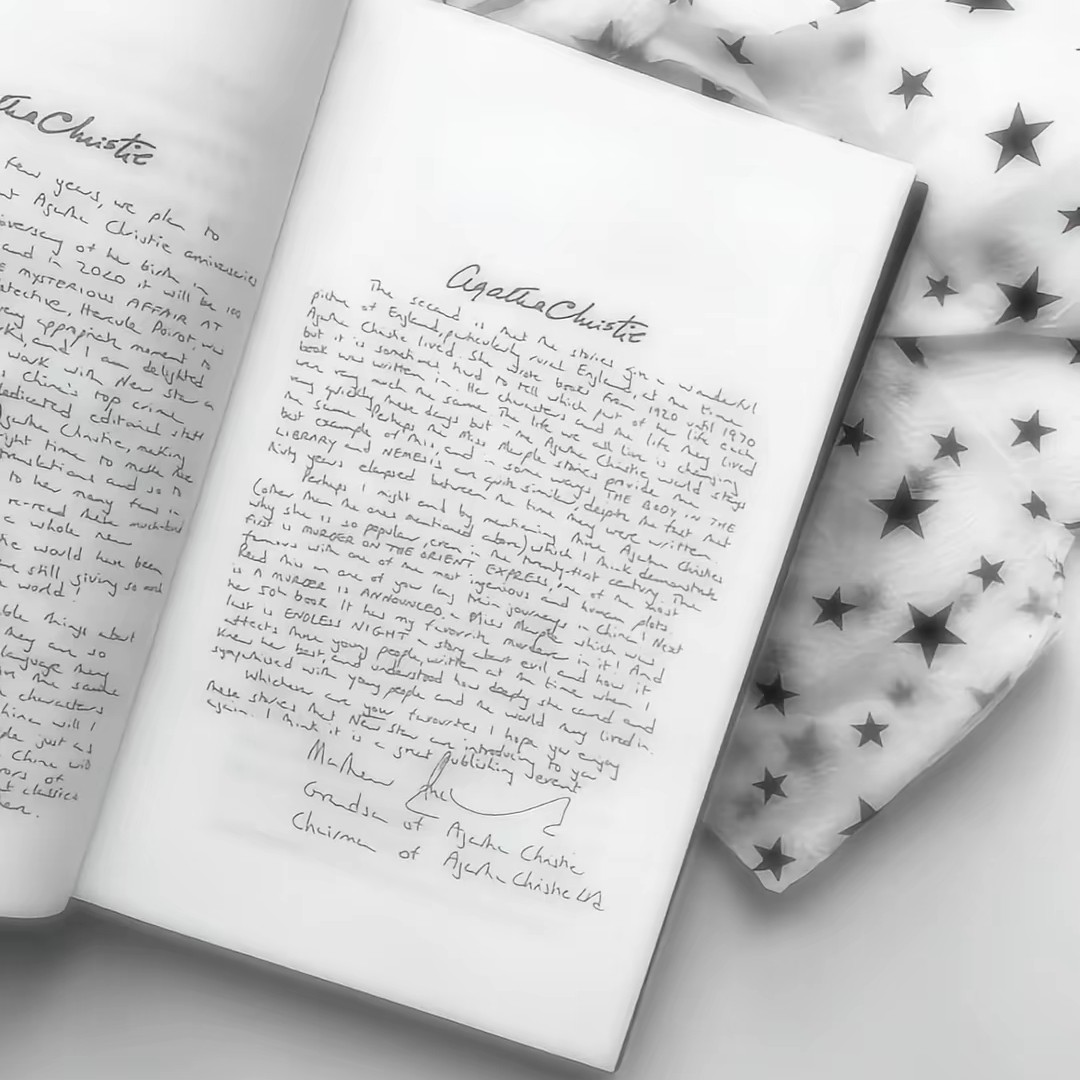 Agatha Christie
few years, we plan to
Agatha Christie anniversaries
of her birth in
and in 2020 it will be 100
MYSTERIOUS AFFAIR AT
Detective, Hercule Poirot, was
very appropriate moment to
and I am delighted
work with New Star on
China's top crime
dedicated editorial staff
Agatha Christie, making
right time to make the
translations and so to
to her many fans in
re-read these much-loved
a whole new
would have been
still giving so much
world!
things about
they are so
language they
in the same
characters
China will
just as
China will
of
classics
AgathaChristie
The second is that the stories give a wonderful
picture of England, particularly rural England, at the time
Agatha Christie lived. She wrote books from 1920 until 1970
but it is sometimes hard to tell which part of her life each
book was written in. Her characters and the life they lived
were very much the same. The life we all live is changing
very quickly these days but in the Agatha Christie world stays
the same. Perhaps the Miss Marple stories provide the
best example of this, and in some ways THE BODY IN THE
LIBRARY and NEMESIS are quite similar, despite the fact that
thirty years elapsed between the time they were written.
Perhaps I might end by mentioning three Agatha Christies
(other than the ones mentioned above) which I think demonstrate
why she is so popular, even in the twenty-first century. The
first is MURDER ON THE ORIENT EXPRESS, one of the most
famous with one of the most ingenious and human plots.
Read this on one of your long train journeys in China! Next
is A MURDER IS ANNOUNCED, a Miss Marple which was
her 50th book. It has my favourite murderer in it! And
last is ENDLESS NIGHT, a story about evil and how it
affects three young people, written at the time when I
knew her best, and understood how deeply she cared and
sympathised with young people and the world they lived in.
Whichever are your favourites I hope you enjoy
these stories that New Star are introducing to you
again. I think it is a great publishing event.
Mathew
Grandson of Agatha Christie
Chairman of Agatha Christie Ltd